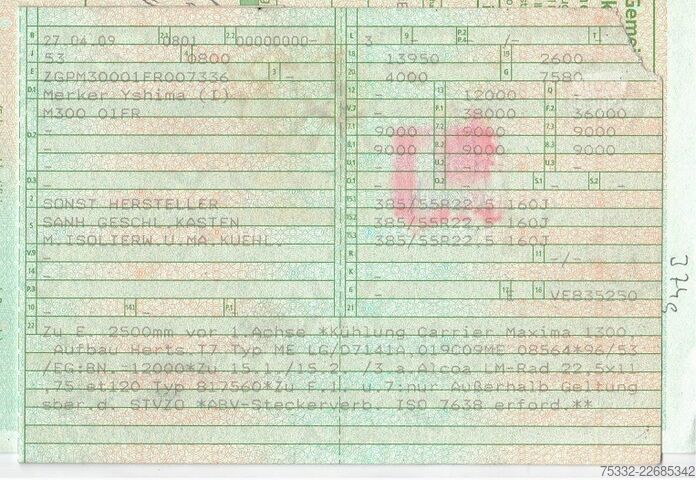 Gemei
B 27.04.09 2.1 0801 2.2 00000000- L 3 9 - P.2 P.4 -/- T -
J 53 4 0800 18 13950 19 2600
E ZGPM30001FR007336 3 - 20 4000 G 7580
D.1 Merker Yshima (I) 12 - 13 12000 Q -
M300 01FR V.7 - F.1 38000 F.2 36000
D.2 - 7.1 9000 7.2 9000 7.3 9000
- 8.1 9000 8.2 9000 8.3 9000
- U.1 - U.2 - U.3 -
D.3 - O.1 - O.2 - S.1 - S.2 -
2 SONST.HERSTELLER 15.1 385/55R22,5 160J
5 SANH.GESCHL.KASTEN 15.2 385/55R22,5 160J
M.ISOLIERW.U.MA.KUEHL. 15.3 385/55R22,5 160J
V.9 - R - 11 -/-
14 - K -
P.3 - 6 - 17 16 VF835250
10 - 14.1 - P.1 - 21 -
22 Zu E. 2500mm vor 1.Achse *Kühlung Carrier Maxima 1300
Aufbau Herts.T7 Typ ME LG/D7141A.019C09ME 08564*96/53
/EG:BN. -12000*Zu 15.1/15.2 /3 a.Alcoa LM-Rad 22.5x11
,75 et120 Typ 817560*Zu F.1 u.7:nur Außerhalb Geltung
sber.d. STVZO *ABV-Steckerverb. ISO 7638 erford.**
75332-22685342